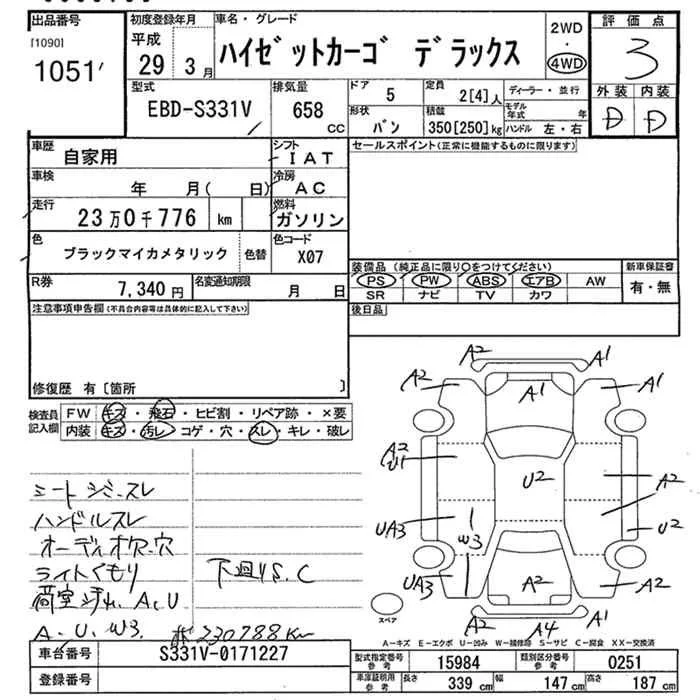 出品番号
[1090]
1051'
初度登録年月
平成
29 3月
車名・グレード
ハイゼットカーゴ デラックス
2WD
・
4WD
評価点
3
外装 内装
D D
型式
EBD-S331V
排気量
658
cc
ドア
5
定員
2[4]人
ディーラー・並行
形状
バン
積載
350[250]kg
モデル年式 年
ハンドル 左・右
車歴
自家用
シフト
IAT
セールスポイント(正常に機能するものに限ります)
車検
年 月( 日)
冷房
AC
走行
23万0千776 km
燃料
ガソリン
色
ブラックマイカメタリック
色替
色コード
X07
装備品(純正品に限り○をつけてください)
新車保証書
PS PW ABS エアB AW
有・無
SR ナビ TV カワ
R券
7,340円
名変通知期限
月 日
後日品
注意事項申告欄(不具合内容等は具体的に記入して下さい)
修復歴 有[箇所 ]
検査員記入欄
FW キズ・飛石・ヒビ割・リペア跡・×要
内装 キズ・汚レ・コゲ・穴・スレ・キレ・破レ
シートシミ・スレ
ハンドルスレ
オーディオ穴・穴
ライトくもり
下廻りS.C
荷室 A.U
A.U.W3
230788Km
A2 A1
A2 A1 A1
A2
W1
U2
A2
UA3
W3
U2
UA3
A2
A2
A4
スペア
A-キズ E-エクボ U-凹み W-補修跡 S-サビ C-腐食 XX-交換済
車台番号
S331V-0171227
登録番号
型式指定番号
参考
15984
類別区分番号
参考
0251
車庫証明用
参考
長さ 339cm 幅 147cm 高さ 187cm